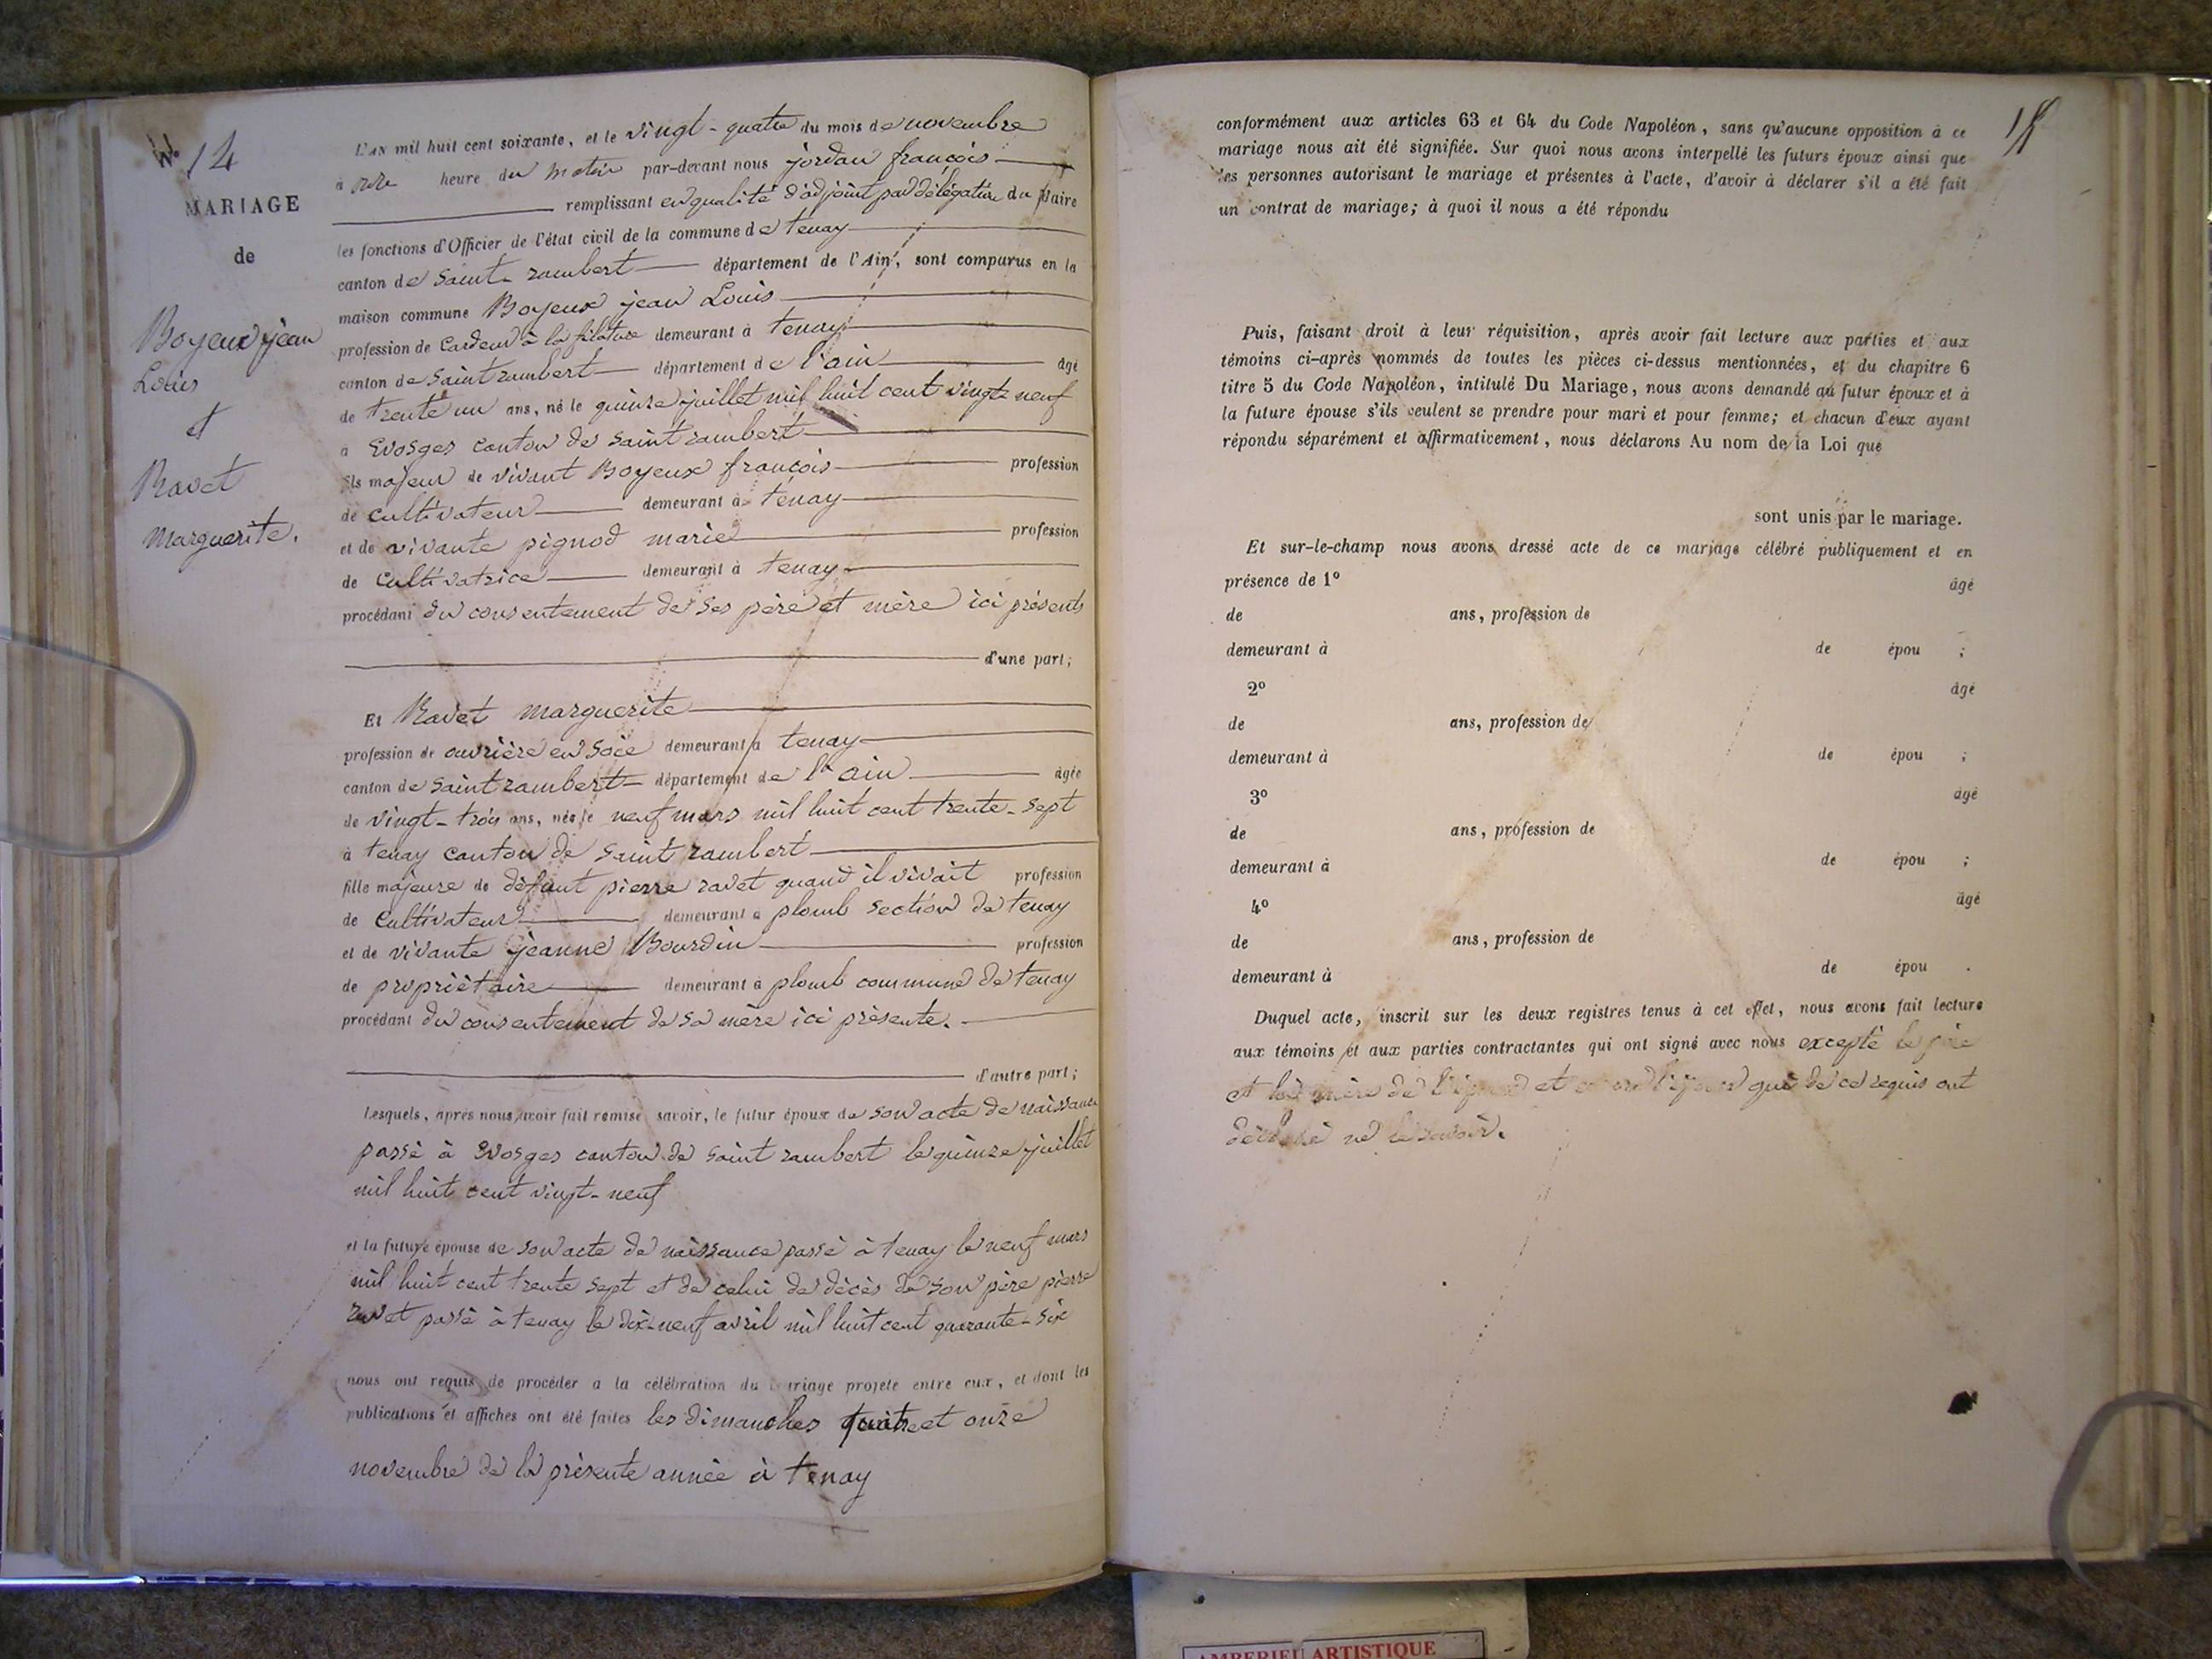 No 14
MARIAGE
de
Boyeux jean
Louis
et
Ravet
Marguerite.
L'AN mil huit cent soixante, et le vingt-quatre du mois de novembre
à onze heure du matin par-devant nous jordan françois
remplissant en qualité d'adjoint par délégation du Maire
les fonctions d'Officier de l'état civil de la commune de tenay
canton de saint-rambert département de l'Ain, sont comparus en la
maison commune Boyeux jean Louis
profession de Cardeur à la filature demeurant à tenay
canton de Saint rambert département de l'ain âgé
de trente un ans, né le quinze juillet mil huit cent vingt-neuf
à Evosges canton de saint rambert
fils majeur de vivant Boyeux françois profession
de cultivateur demeurant à tenay
et de vivante pignod marie profession
de Cultivatrice demeurant à tenay
procédant du consentement de ses père et mère ici présents
d'une part;
Et Ravet marguerite
profession de ouvrière en soie demeurant à tenay
canton de saint rambert département de l'ain âgée
de vingt-trois ans, née le neuf mars mil huit cent trente-sept
à tenay canton de saint rambert
fille majeure de défunt pierre ravet quand il vivait profession
de Cultivateur demeurant à plomb section de tenay
et de vivante jeanne Bourdin profession
de propriétaire demeurant à plomb commune de tenay
procédant du consentement de sa mère ici présente.
d'autre part;
Lesquels, après nous avoir fait remise savoir, le futur époux de son acte de naissance
passé à Evosges canton de saint rambert le quinze juillet
mil huit cent vingt-neuf
et la future épouse de son acte de naissance passé à tenay le neuf mars
mil huit cent trente sept et de celui de décès de son père pierre
ravet passé à tenay le dix-neuf avril mil huit cent quarante-six
nous ont requis de procéder a la célébration du mariage projeté entre eux, et dont les
publications et affiches ont été faites les dimanches quatre et onze
novembre de la présente année à tenay
conformément aux articles 63 et 64 du Code Napoléon, sans qu'aucune opposition à ce
mariage nous ait été signifiée. Sur quoi nous avons interpellé les futurs époux ainsi que
les personnes autorisant le mariage et présentes à l'acte, d'avoir à déclarer s'il a été fait
un contrat de mariage; à quoi il nous a été répondu
Puis, faisant droit à leur réquisition, après avoir fait lecture aux parties et aux
témoins ci-après nommés de toutes les pièces ci-dessus mentionnées, et du chapitre 6
titre 5 du Code Napoléon, intitulé Du Mariage, nous avons demandé au futur époux et à
la future épouse s'ils veulent se prendre pour mari et pour femme; et chacun d'eux ayant
répondu séparément et affirmativement, nous déclarons Au nom de la Loi que
sont unis par le mariage.
Et sur-le-champ nous avons dressé acte de ce mariage célébré publiquement et en
présence de 1º âgé
de ans, profession de
demeurant à de épou ;
2º âgé
de ans, profession de
demeurant à de épou ;
3º âgé
de ans, profession de
demeurant à de épou ;
4º âgé
de ans, profession de
demeurant à de épou .
Duquel acte, inscrit sur les deux registres tenus à cet effet, nous avons fait lecture
aux témoins et aux parties contractantes qui ont signé avec nous excepté le père
et la mère de l'époux et que de ce requis ont
déclaré ne le savoir.
AMBERIEU ARTISTIQUE